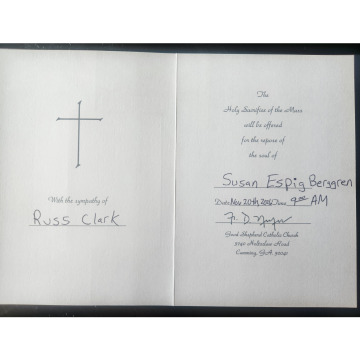 With the sympathy of
Russ Clark
The
Holy Sacrifice of the Mass
will be offered
for the repose of
the soul of
Susan Espig Berggren
Date Nov 20th Time 9:00 AM
Fr. D.
Good Shepherd Catholic Church
3740 Holtzclaw Road
Cumming, GA 30040